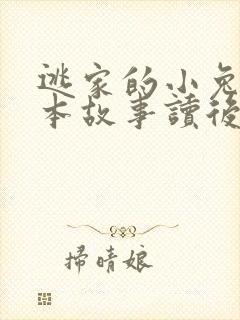 逃家的小兔
本故事讀後
掃晴娘